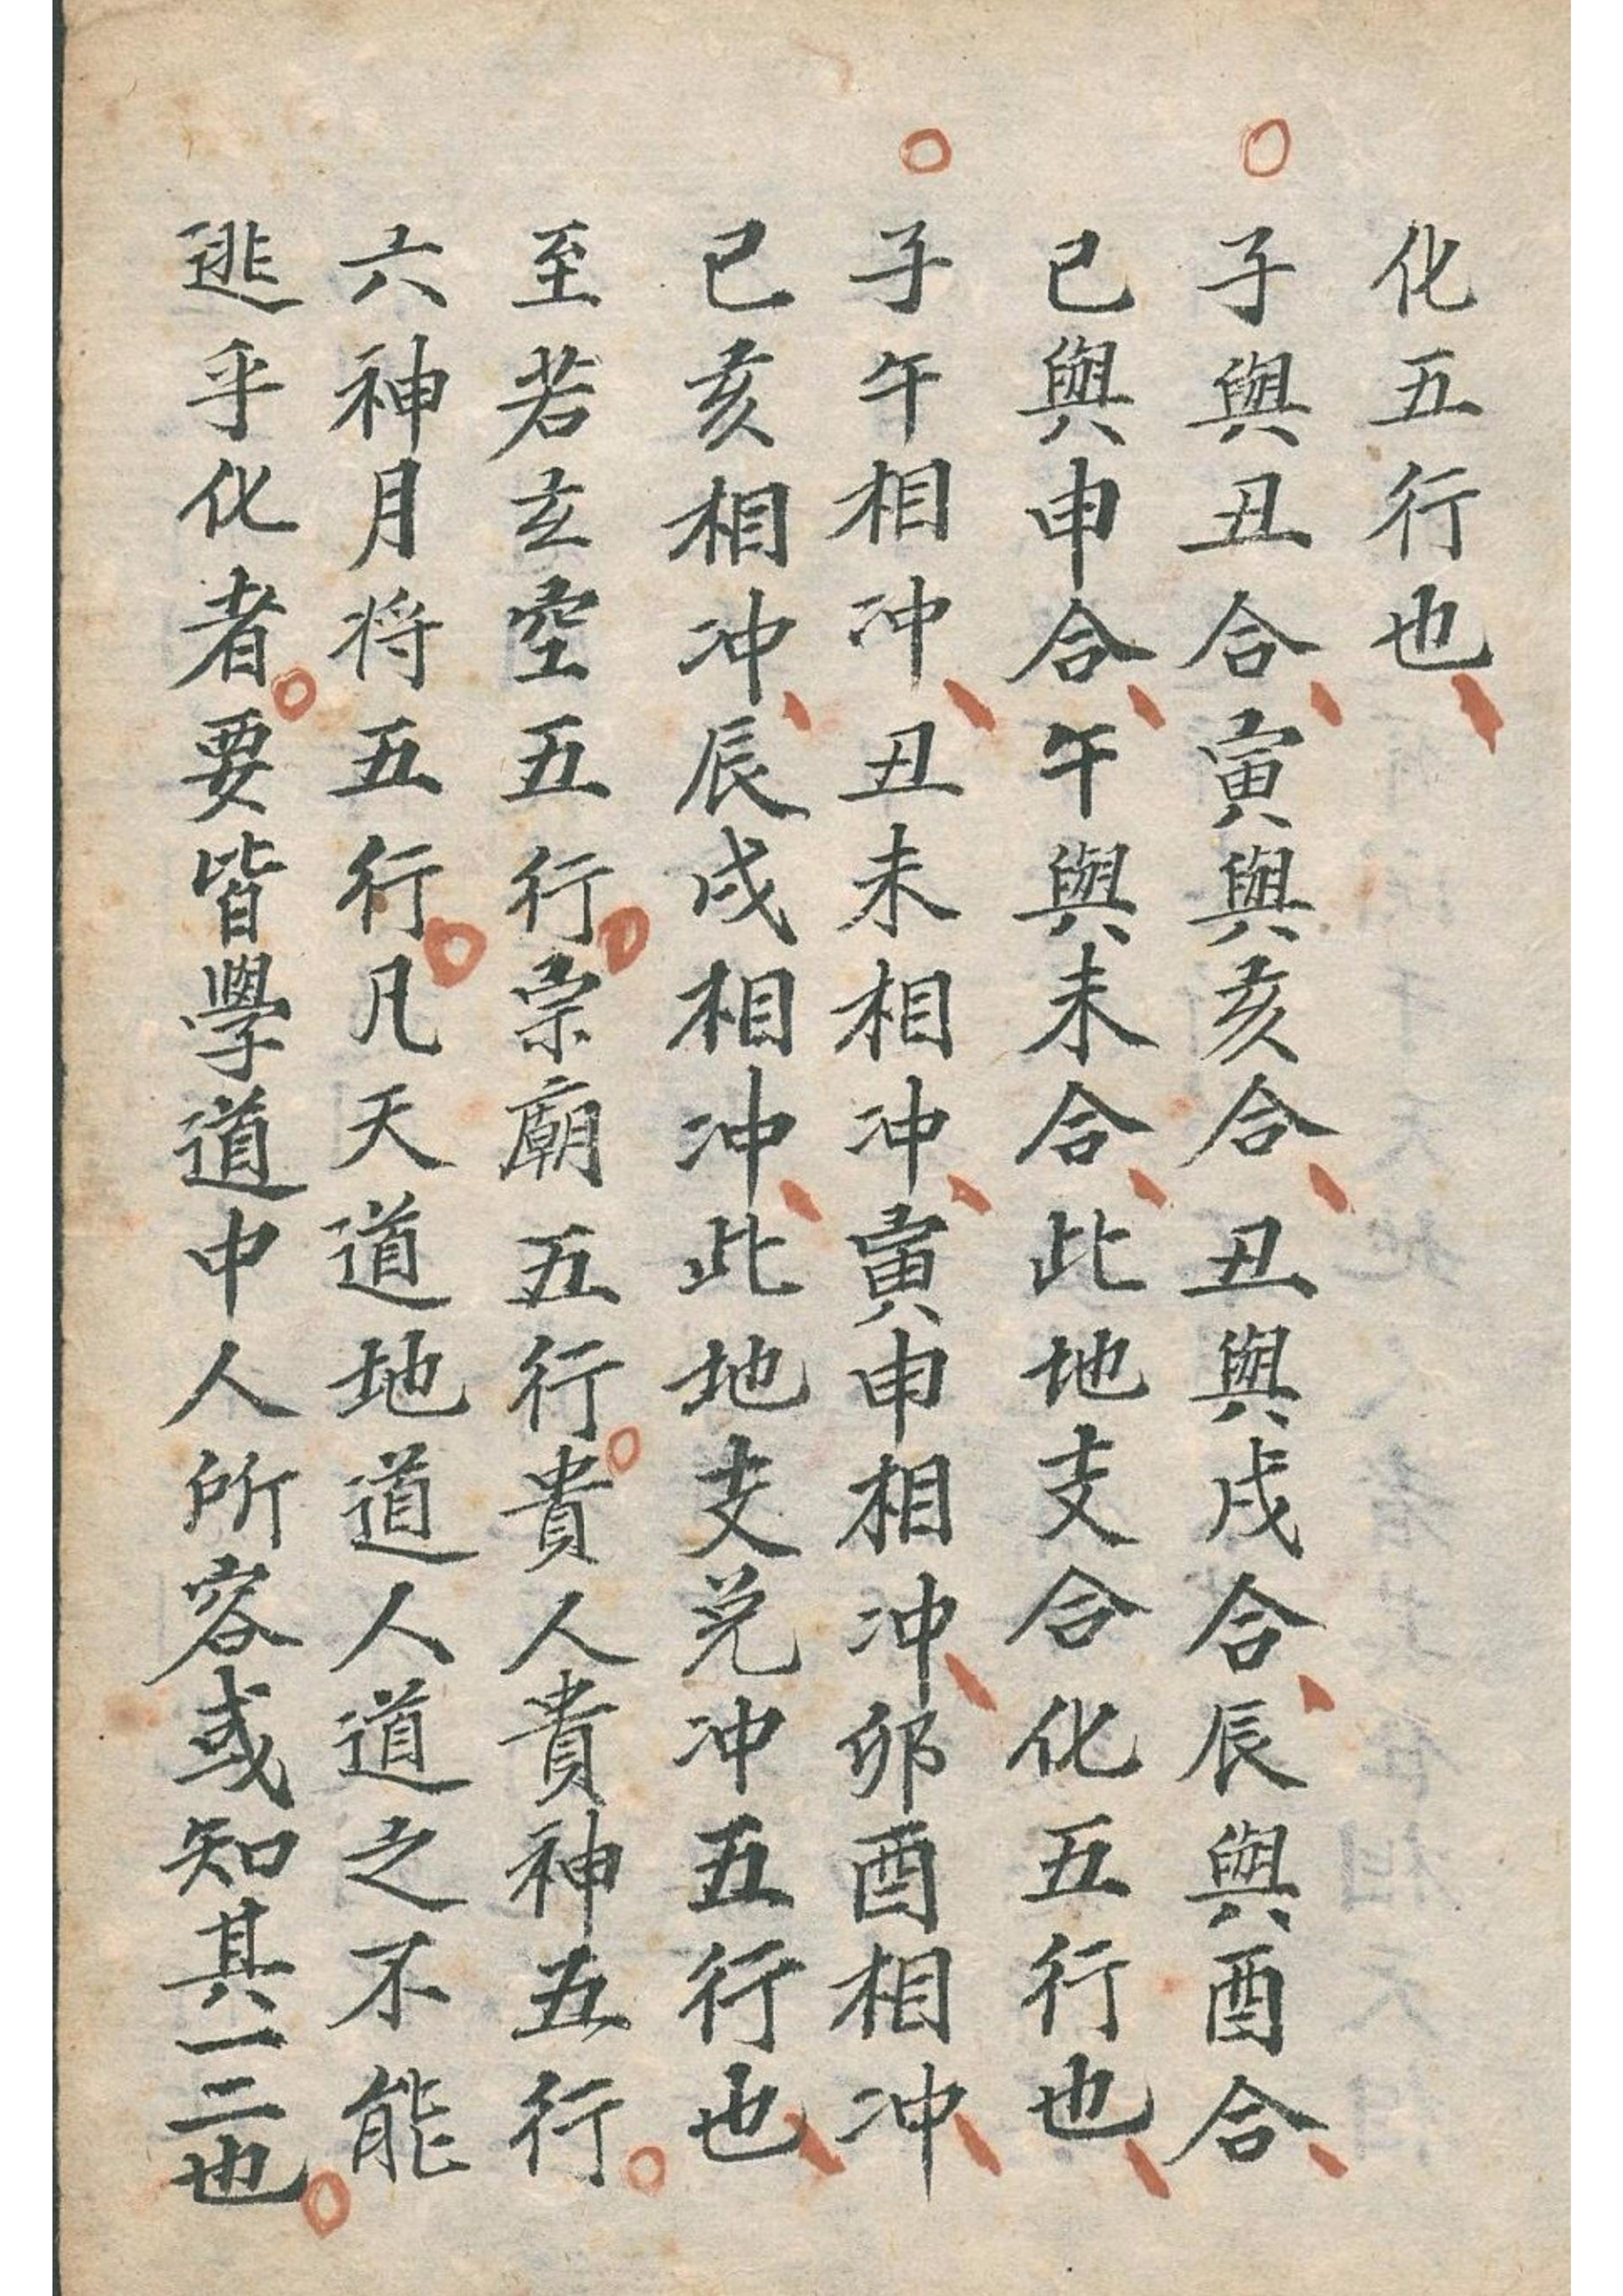 化五行也
子與丑合寅與亥合丑與戌合辰與酉合
已與申合午與未合此地支合化五行也
子午相冲丑未相冲寅申相冲卯酉相冲
已亥相冲辰戌相冲此地支兑冲五行也
至若玄空五行宗廟五行貴人貴神五行
六神月将五行凡天道地道人道之不能
逃乎化者要皆學道中人所容或知其一二也